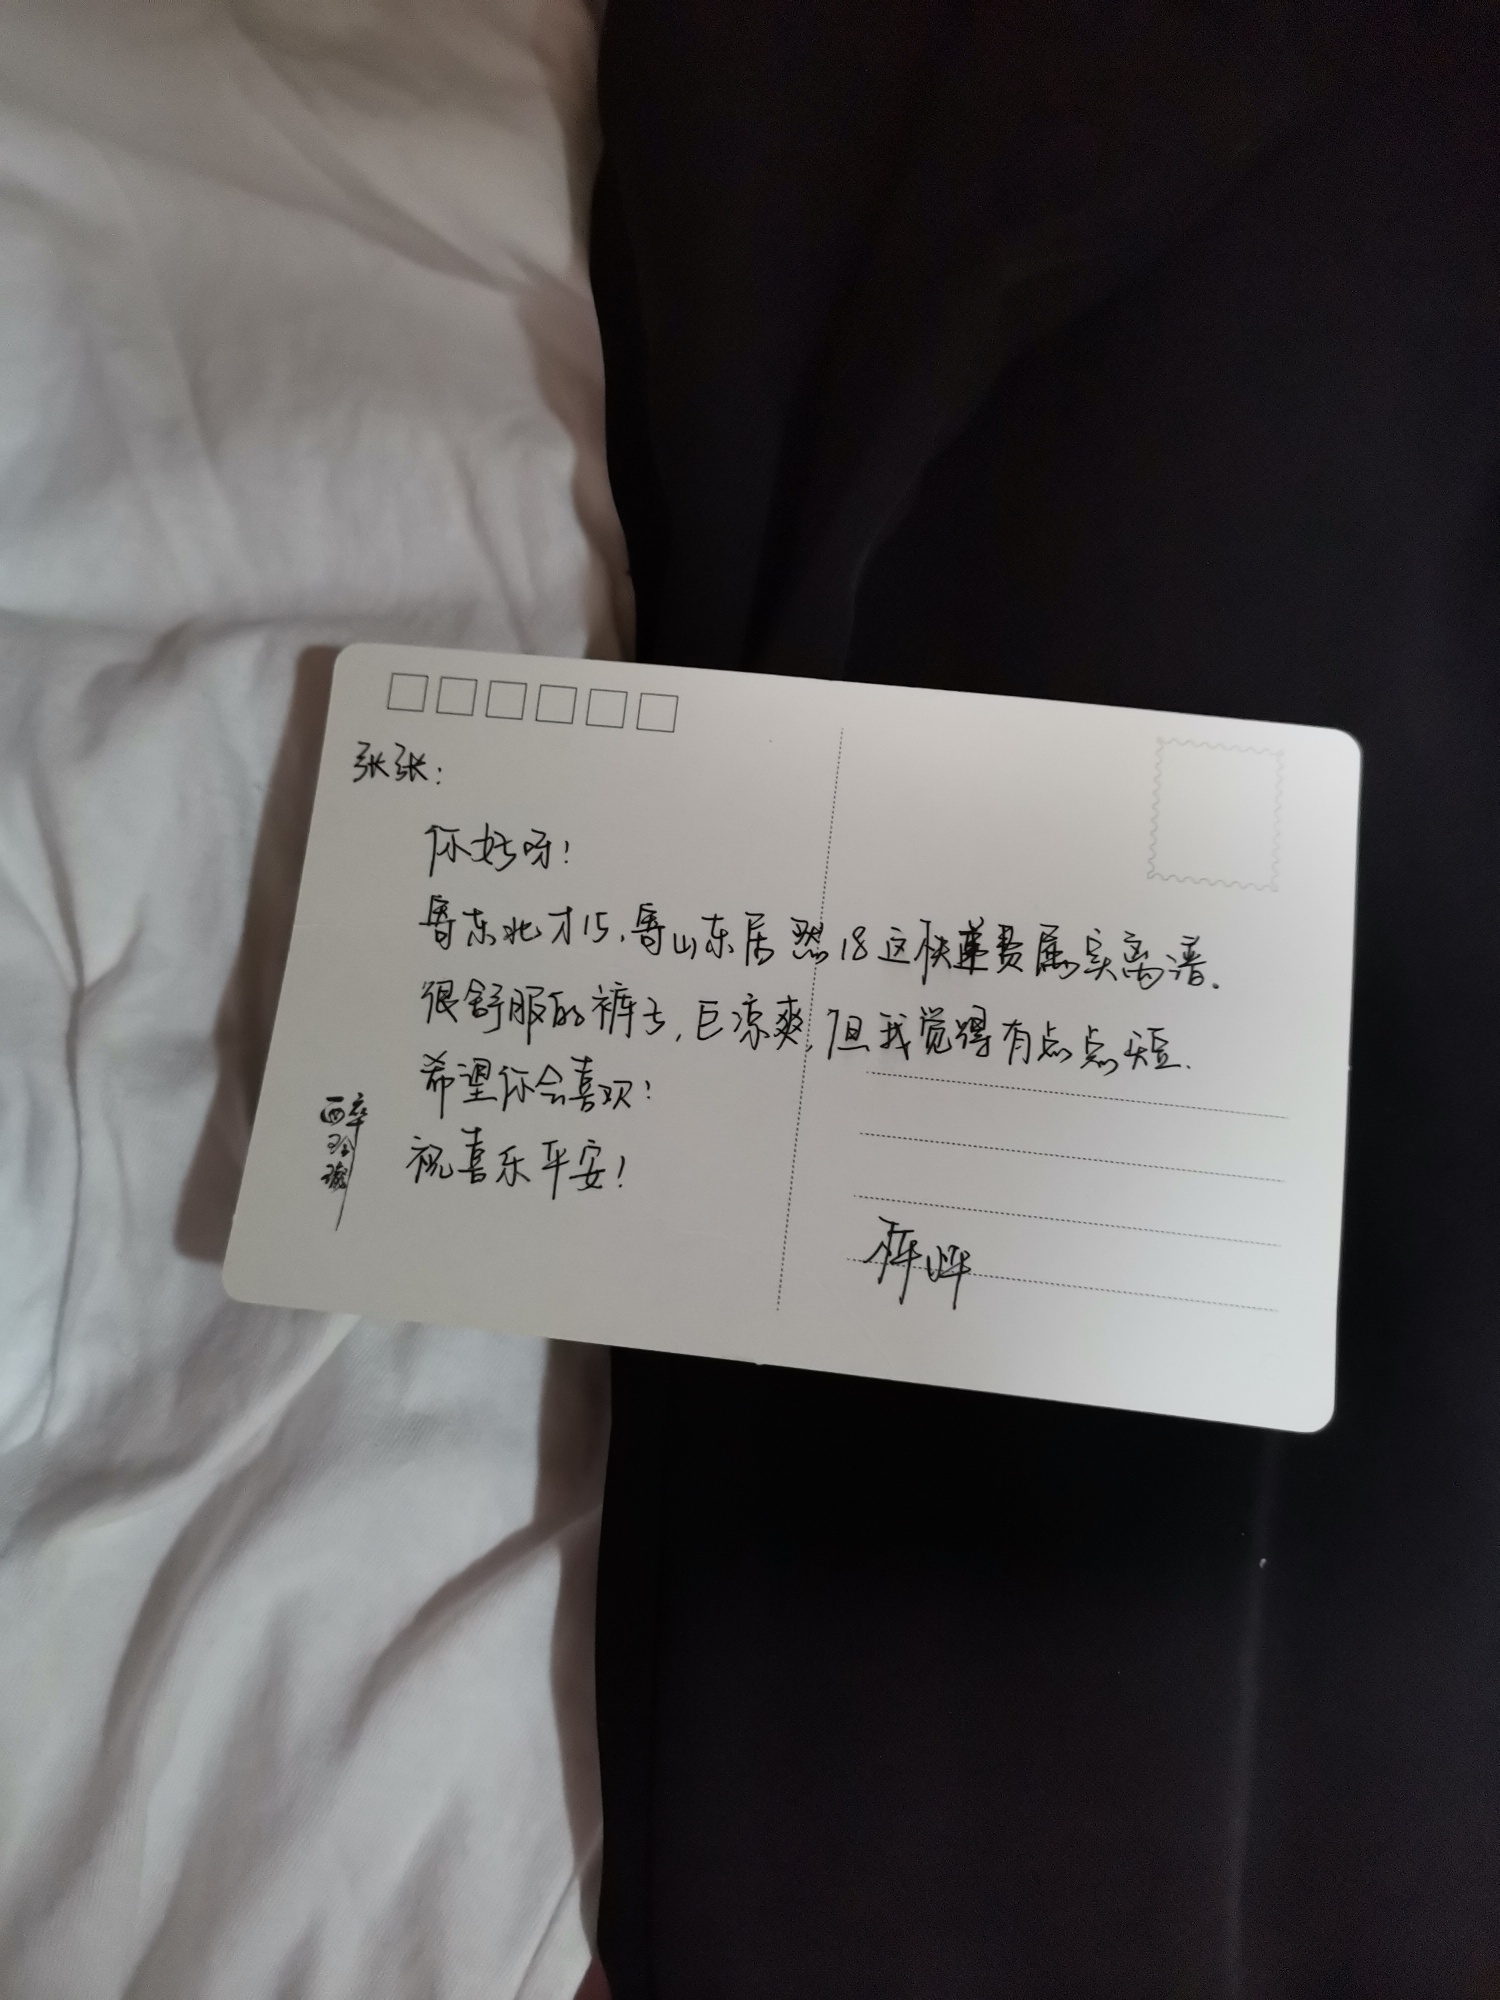 张张：
你好呀！
寄东北才15，寄山东居然18这快递费属实离谱。
很舒服的裤子，巨凉爽，但我觉得有点点短.
希望你会喜欢！
祝喜乐平安！
醉玲珑